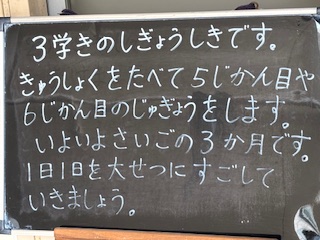 3学きのしぎょうしきです。
きゅうしょくをたべて5じかん目や
6じかん目のじゅぎょうをします。
いよいよさいごの3か月です。
1日1日を大せつにすごして
いきましょう。